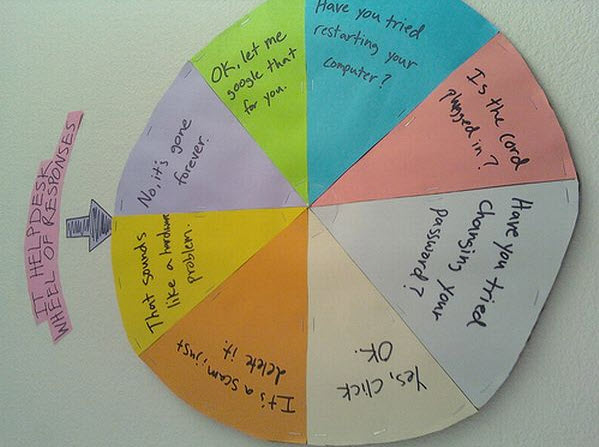 IT HELPDESK
WHEEL OF RESPONSES
Have you tried
restarting your
computer?
Is the cord
plugged in?
Have you tried
changing your
password?
Yes, click
OK.
It's a scam, just
delete it.
That sounds
like a hardware
problem.
No, it's gone
forever.
OK, let me
google that
for you.